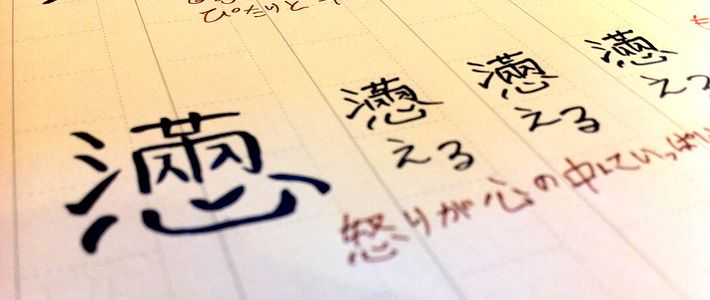 ぴたりと
懣
懣える
懣える
懣える
怒りが心の中にいっぱい